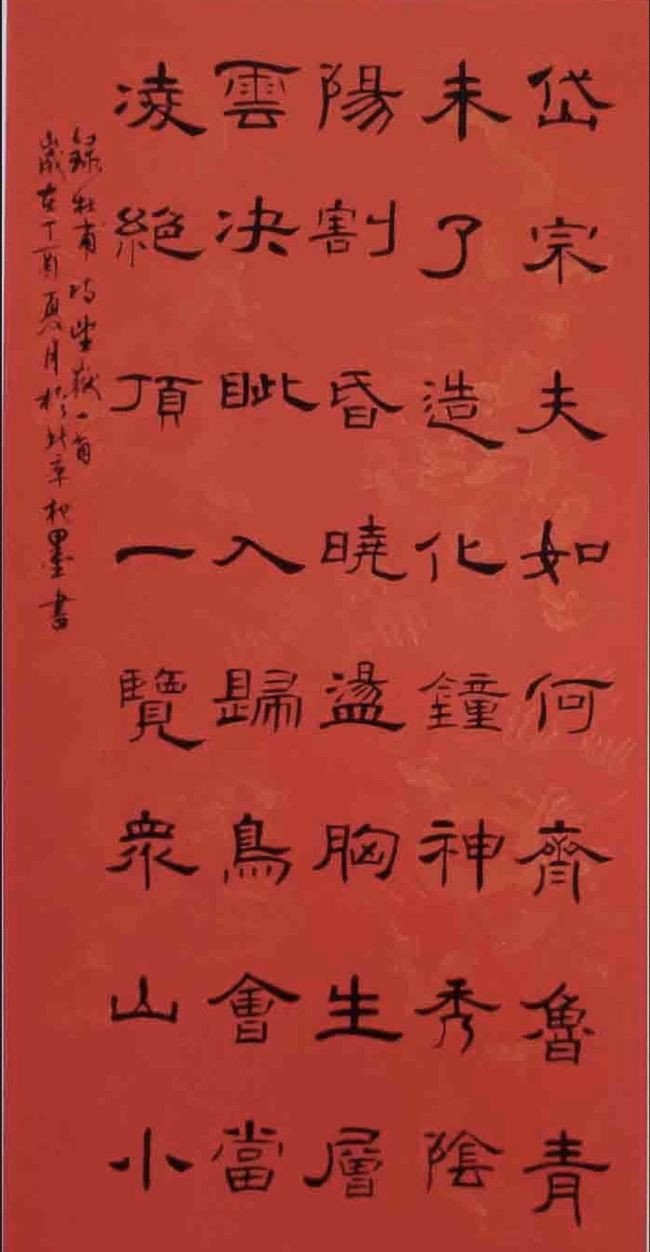 岱宗夫如何齊魯青
未了造化鐘神秀陰
陽割昏曉盪胸生層
雲決眦入歸鳥會當
凌絕頂一覽衆山小
錄杜甫詩望嶽一首
歲在丁酉夏月於北京 墨書